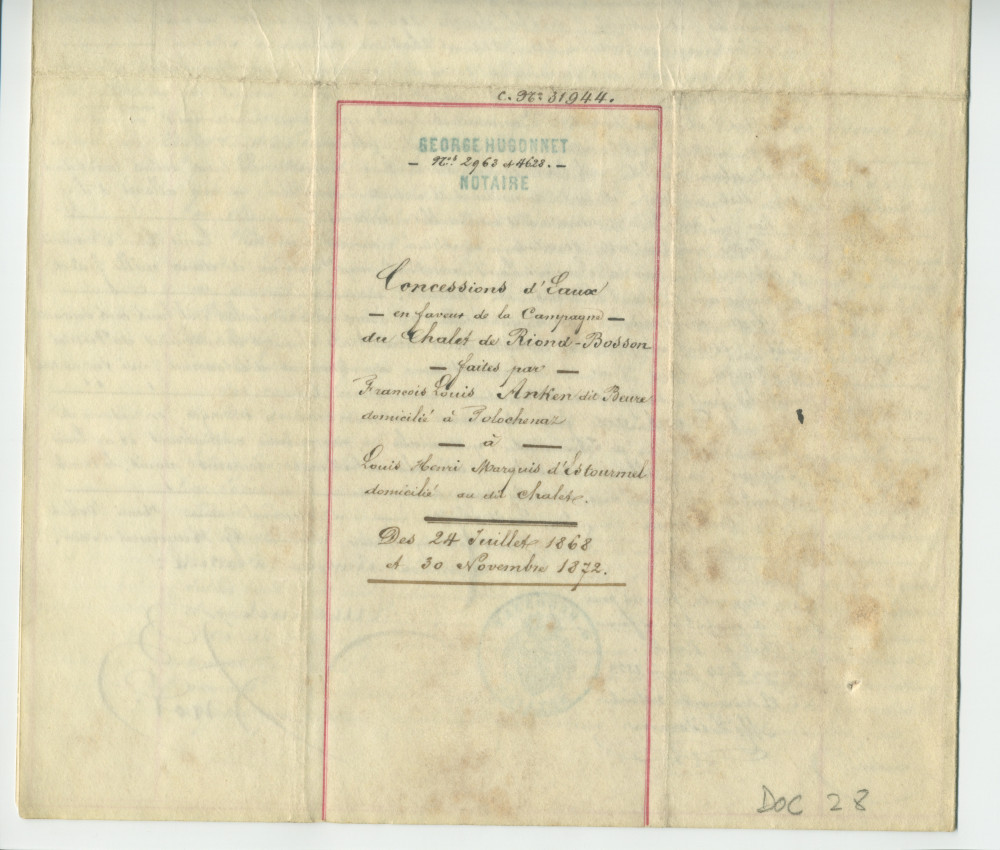 C. No. 31944.
GEORGE HUGONNET
— Nos. 2963 et 4628. —
NOTAIRE
Concessions d'Eaux
— en faveur de la Campagne —
du Chalet de Riond-Bosson
— faites par —
François Louis Anken dit Beure
domicilié à Tolochenaz
— à —
Louis Henri Marquis d'Estourmel
domicilié au dit chalet.
Des 24 Juillet 1868
et 30 Novembre 1872.
DOC 28